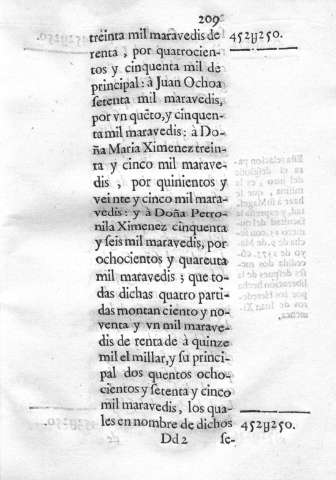 209
treinta mil maravedis de
452U250.
renta , por quatrocien-
tos y cinquenta mil de
principal: à Juan Ochoa
setenta mil maravedis,
por vn quẽto, y cinquen-
ta mil maravedis: à Do-
ña Maria Ximenez trein-
ta y cinco mil marave-
dis , por quinientos y
veinte y cinco mil mara-
vedis: y à Doña Petro-
nila Ximenez cinquenta
y seis mil maravedis, por
ochocientos y quarenta
mil maravedis; que to-
das dichas quatro parti-
das montan ciento y no-
venta y vn mil marave-
dis de renta de à quinze
mil el millar, y su princi-
pal dos quentos ocho-
cientos y setenta y cinco
mil maravedis, los qua-
les en nombre de dichos
452U250.
Dd2 se-